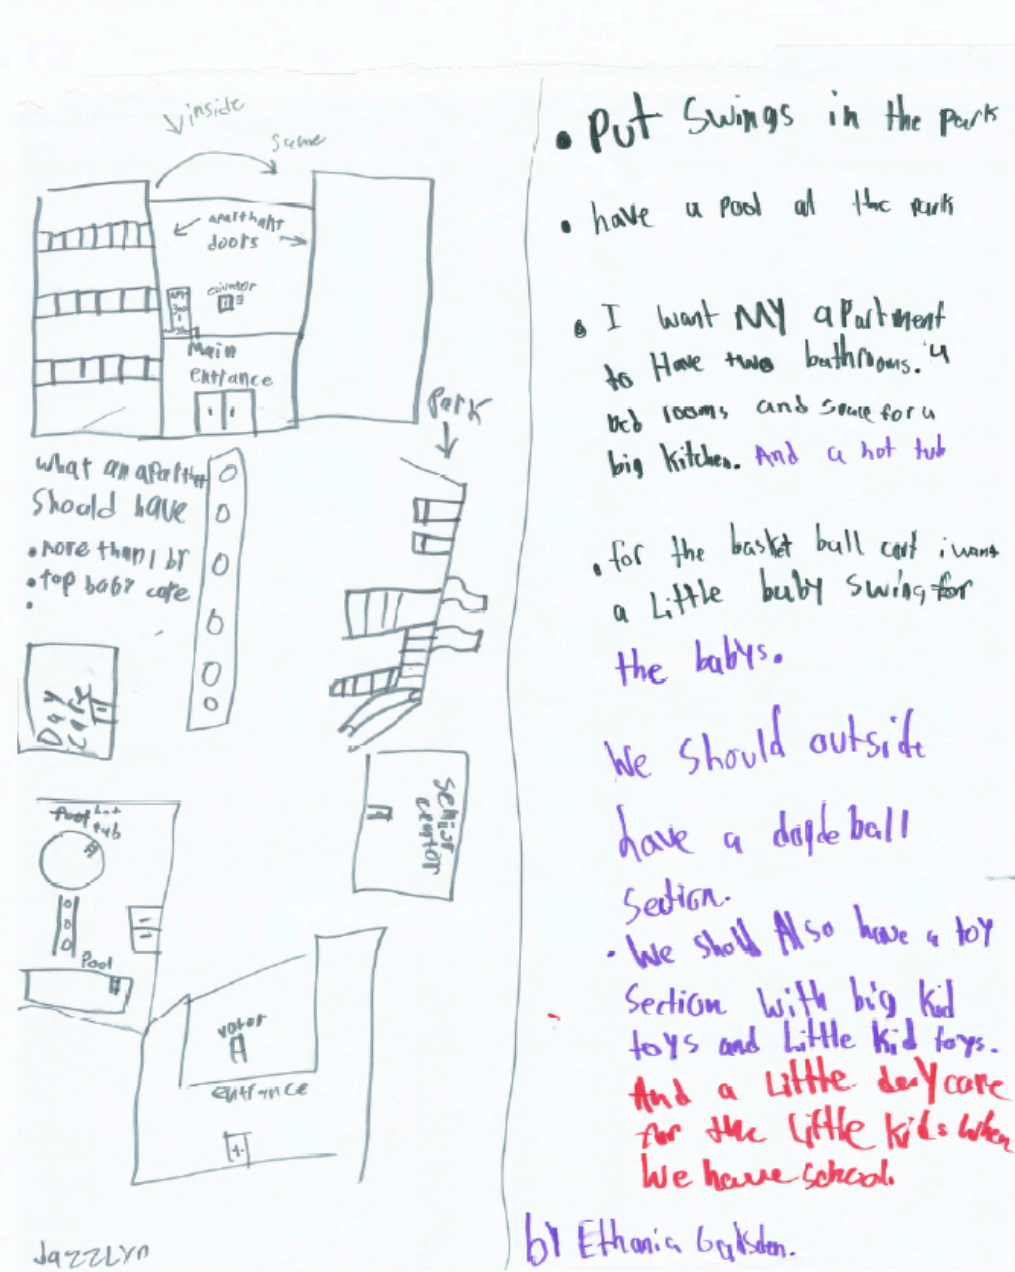 inside
same
apartmant
doors
Main
entrance
Park
what an apartment
should have
• more than 1 br
• top baby care
•
Day
care
hot
tub
Pool
senior
centor
entrance
Jazzlyn
• Put Swings in the park
• have a pool at the park
• I want MY apartment
to Have two bathrooms. 4
bed rooms and space for a
big kitchen. And a hot tub
• for the basket ball cort i want
a Little baby swing for
the babys.
We should outside
have a dogdeball
section.
• We should Also have a toy
section with big kid
toys and Little kid toys.
And a Little daycare
for the Little kids when
We have school.
by Ethania